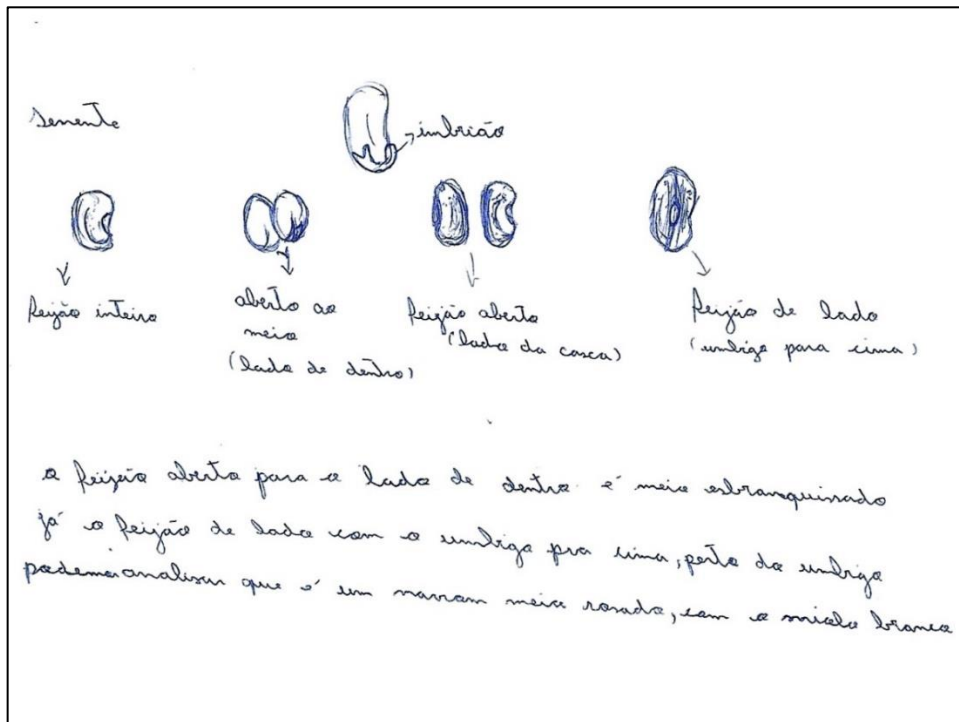 Semente
imbrião
feijão inteiro
aberto ao
meio
(lado de dentro)
feijão aberto
(lado da casca)
feijão de lado
(umbigo para cima)
o feijão aberto para o lado de dentro é meio esbranquissado
já o feijão de lado com o umbigo pra cima, perto do umbigo
podemos analisar que é um marrom meio rosado, com o miolo branco